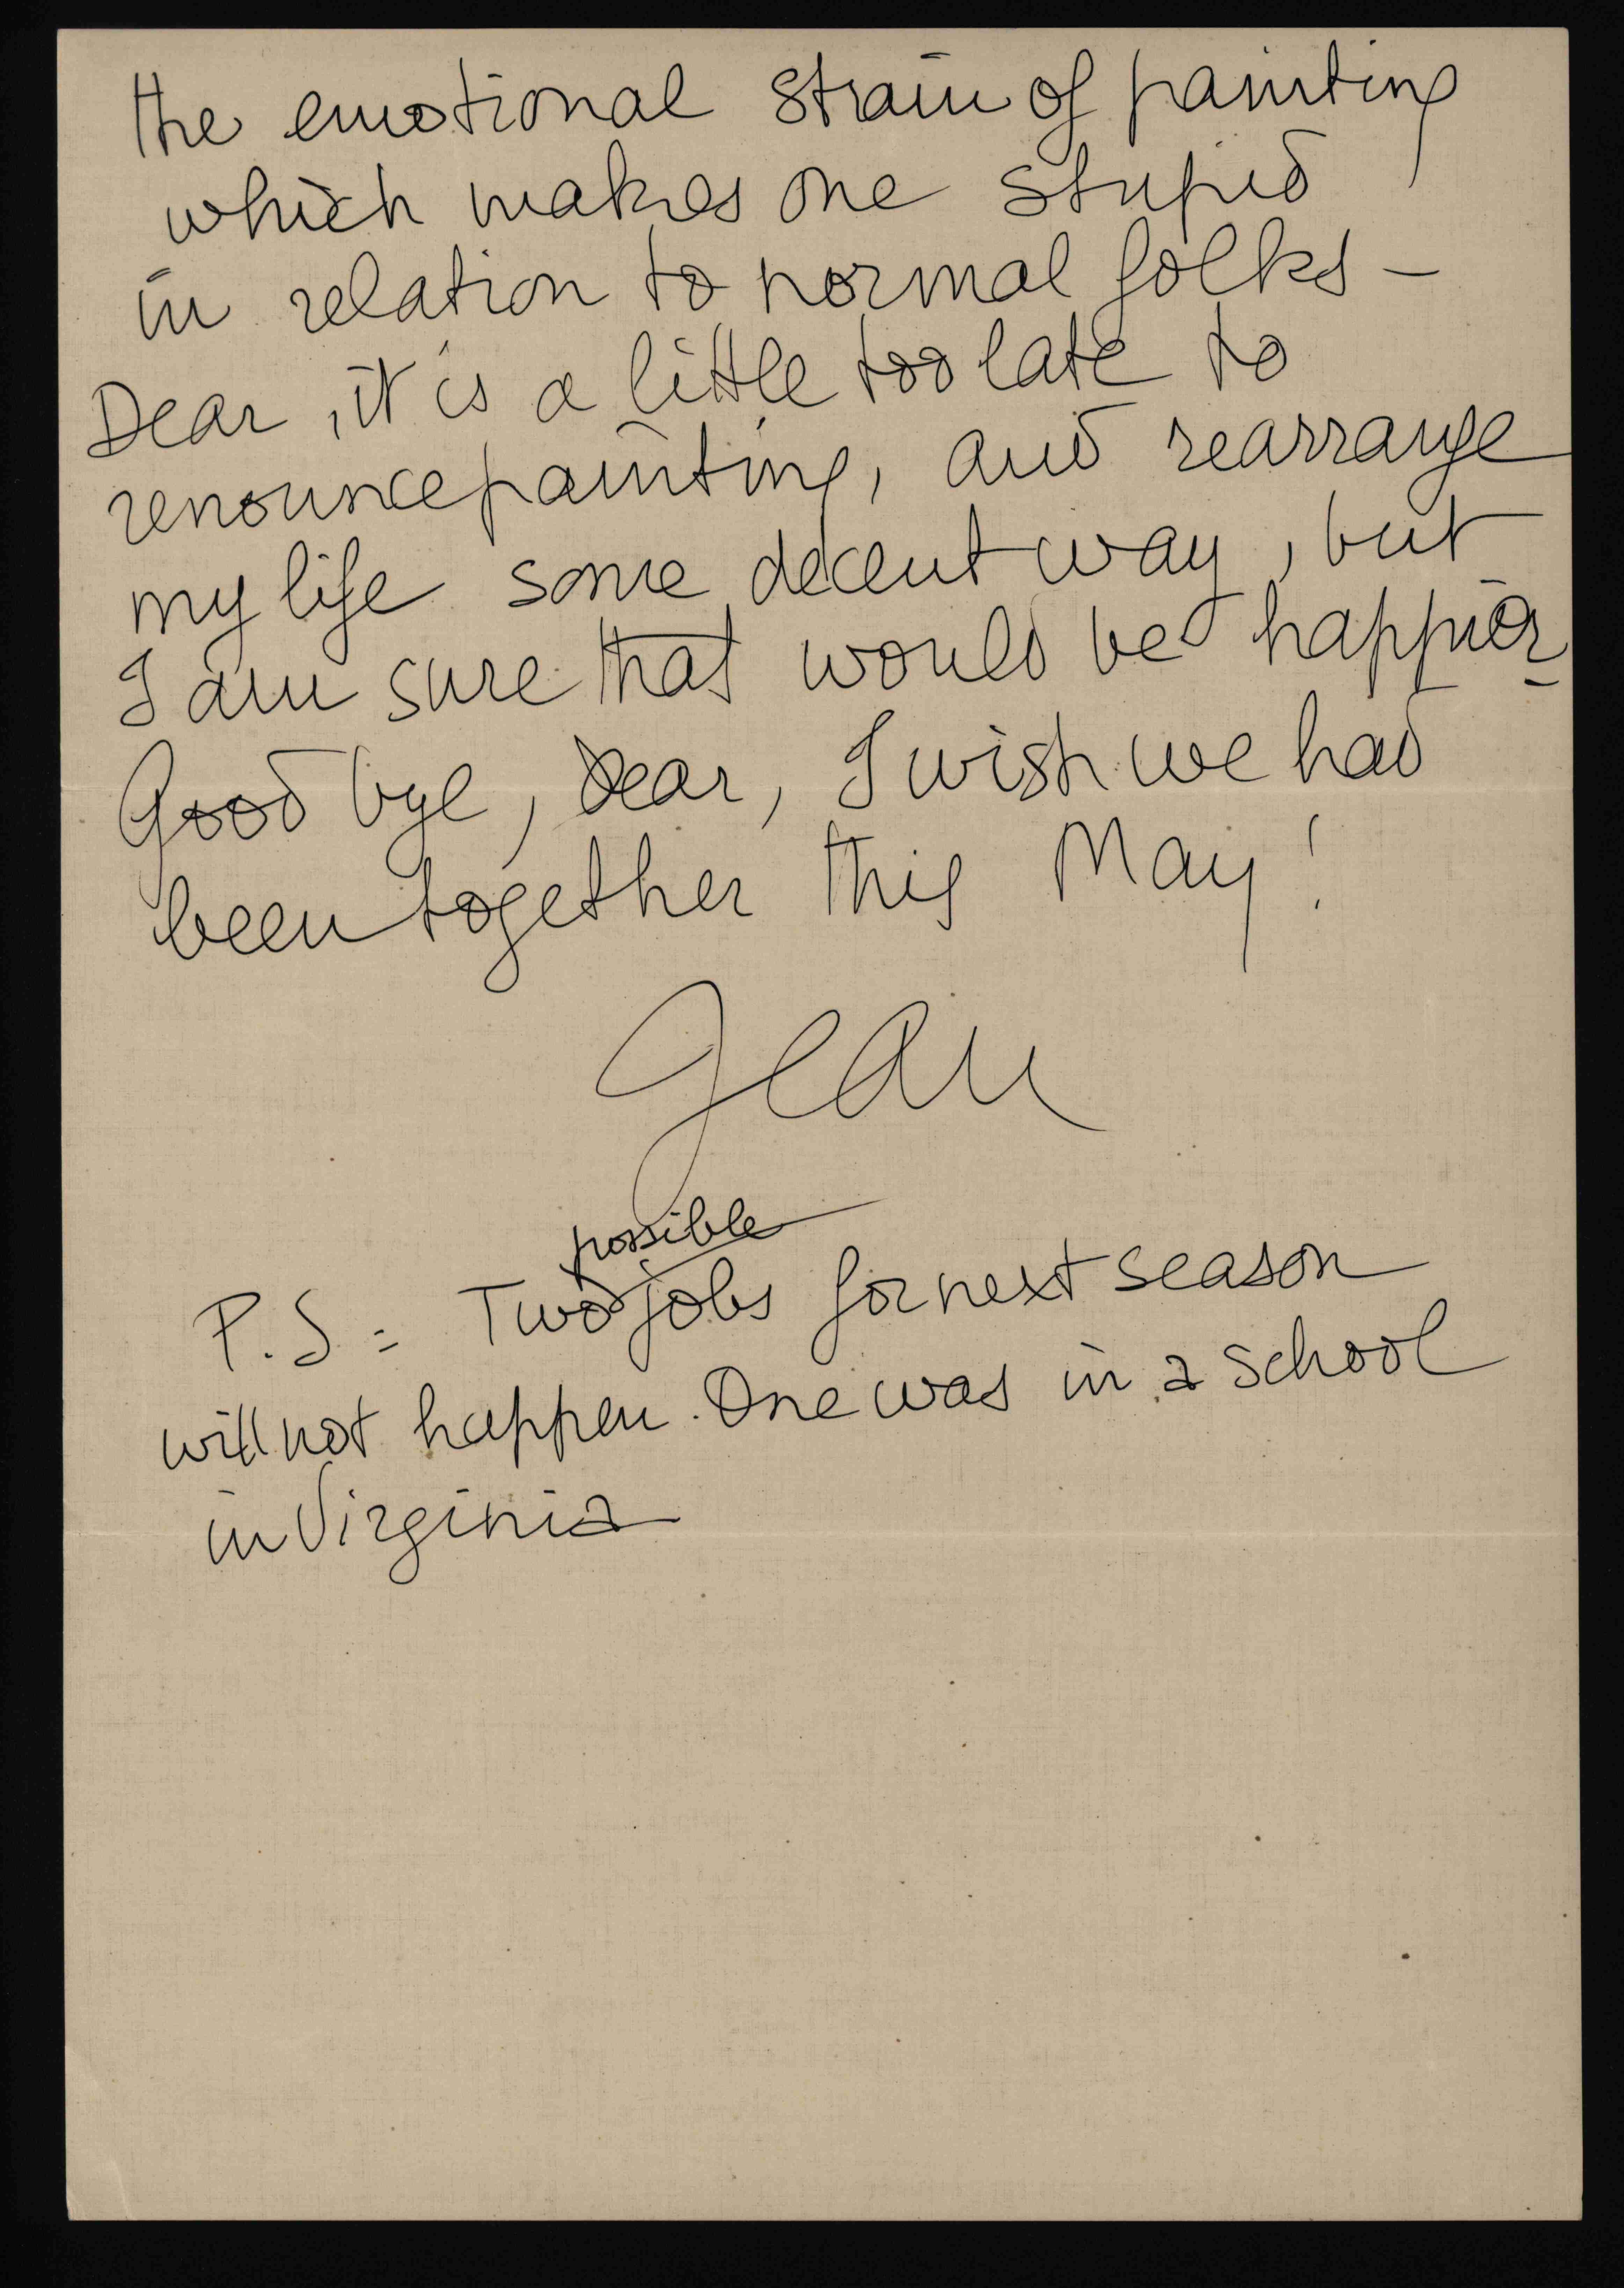 the emotional strain of painting
which makes one stupid
in relation to normal folks –
Dear, it is a little too late to
renounce painting, and rearrange
my life some decent way, but
I am sure that would be happier –
Good bye, dear, I wish we had
been together this May!
Jean
possible
P.S = Two jobs for next season
will not happen. One was in a school
in Virginia